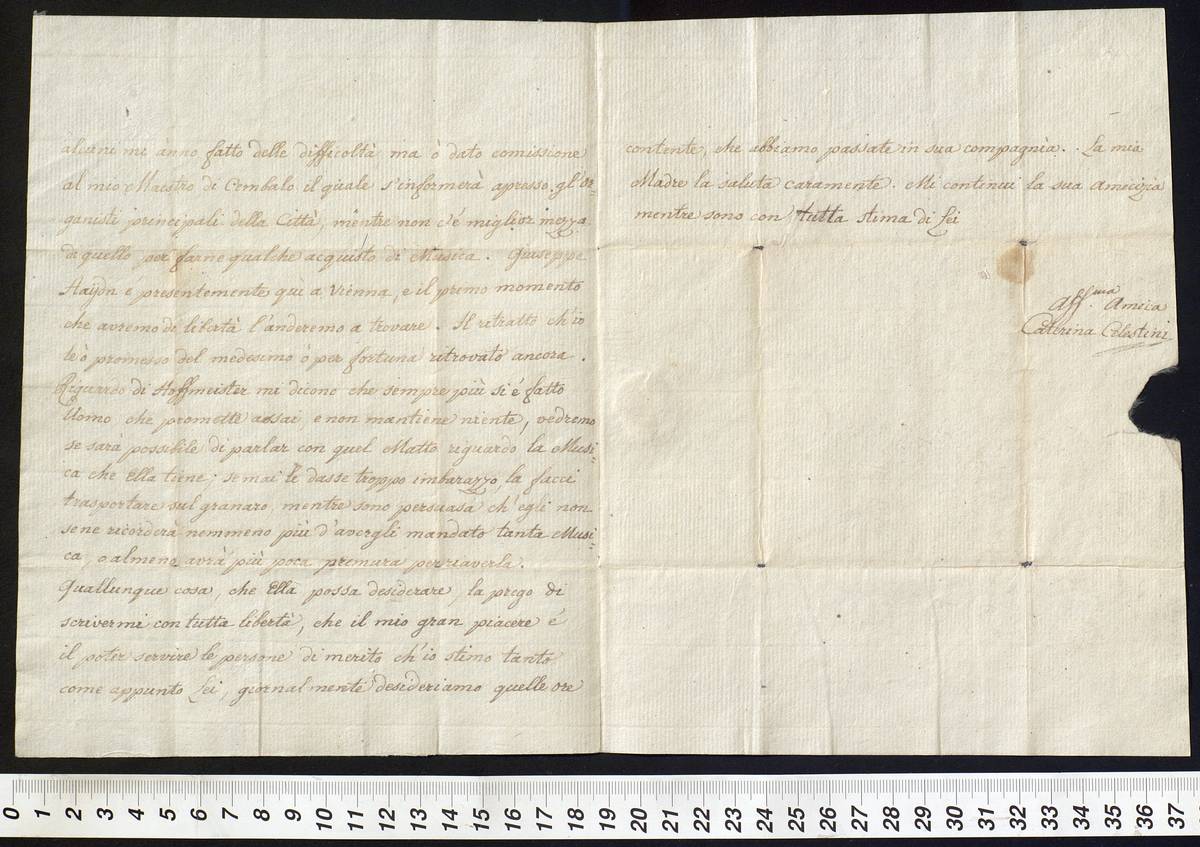 alcuni mi anno fatto delle difficoltà ma ò dato comissione
al mio Maestro di Cembalo il quale s'informerà apresso gl'or-
ganisti principali della Città, mentre non c'é miglior mezzo
di quello per farne qualche acquisto di Musica. Giuseppe
Haÿdn e presentemente quì a Vienna, e il premo momento
che avremo di libertà l'anderemo a trovare. Il ritratto ch'io
le ò promesso del medesimo ò per fortuna ritrovato ancora.
Riguardo di Hoffmeister mi dicono che sempre più si é fatto
Uomo che promette assai, e non mantiene niente, vedremo
se sarà possibile di parlar con quel Matto riguardo la Musi-
ca che Ella tiene; se mai le dasse troppo imbarazzo, la facci
trasportare sul granaro, mentre sono persuasa ch'egli non
se ne ricorderà nemmeno più d'avergli mandato tanta Musi-
ca, o almeno avrà più poca premura per riaverla.
Quallunque cosa, che Ella possa desiderare, la prego di
scrivermi con tutta libertà, che il mio gran piacere é
il poter servire le persone di merito ch'io stimo tanto
come appunto Lei, giornalmente desideriamo quelle ore
contente, che abbiamo passate in sua compagnìa. La mia
Madre la saluta caramente. Mi continui la sua amicizia
mentre sono con tutta stima di Lei
Aff.ma Amica
Caterina Celestini
0 1 2 3 4 5 6 7 8 9 10 11 12 13 14 15 16 17 18 19 20 21 22 23 24 25 26 27 28 29 30 31 32 33 34 35 36 37